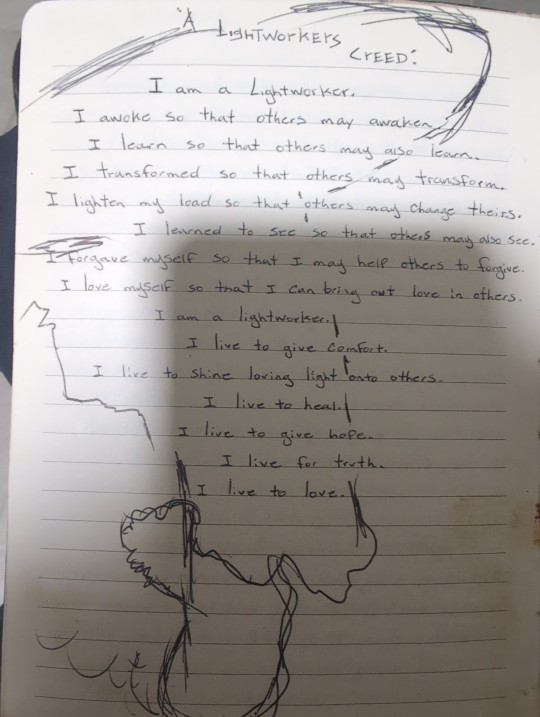 A LIGHTWORKERS
CREED:
I am a Lightworker.
I awoke so that others may awaken.
I learn so that others may also learn.
I transformed so that others may transform.
I lighten my load so that others may change theirs.
I learned to see so that others may also see.
I forgave myself so that I may help others to forgive.
I love myself so that I can bring out love in others.
I am a lightworker.
I live to give comfort.
I live to shine loving light onto others.
I live to heal.
I live to give hope.
I live for truth.
I live to love.